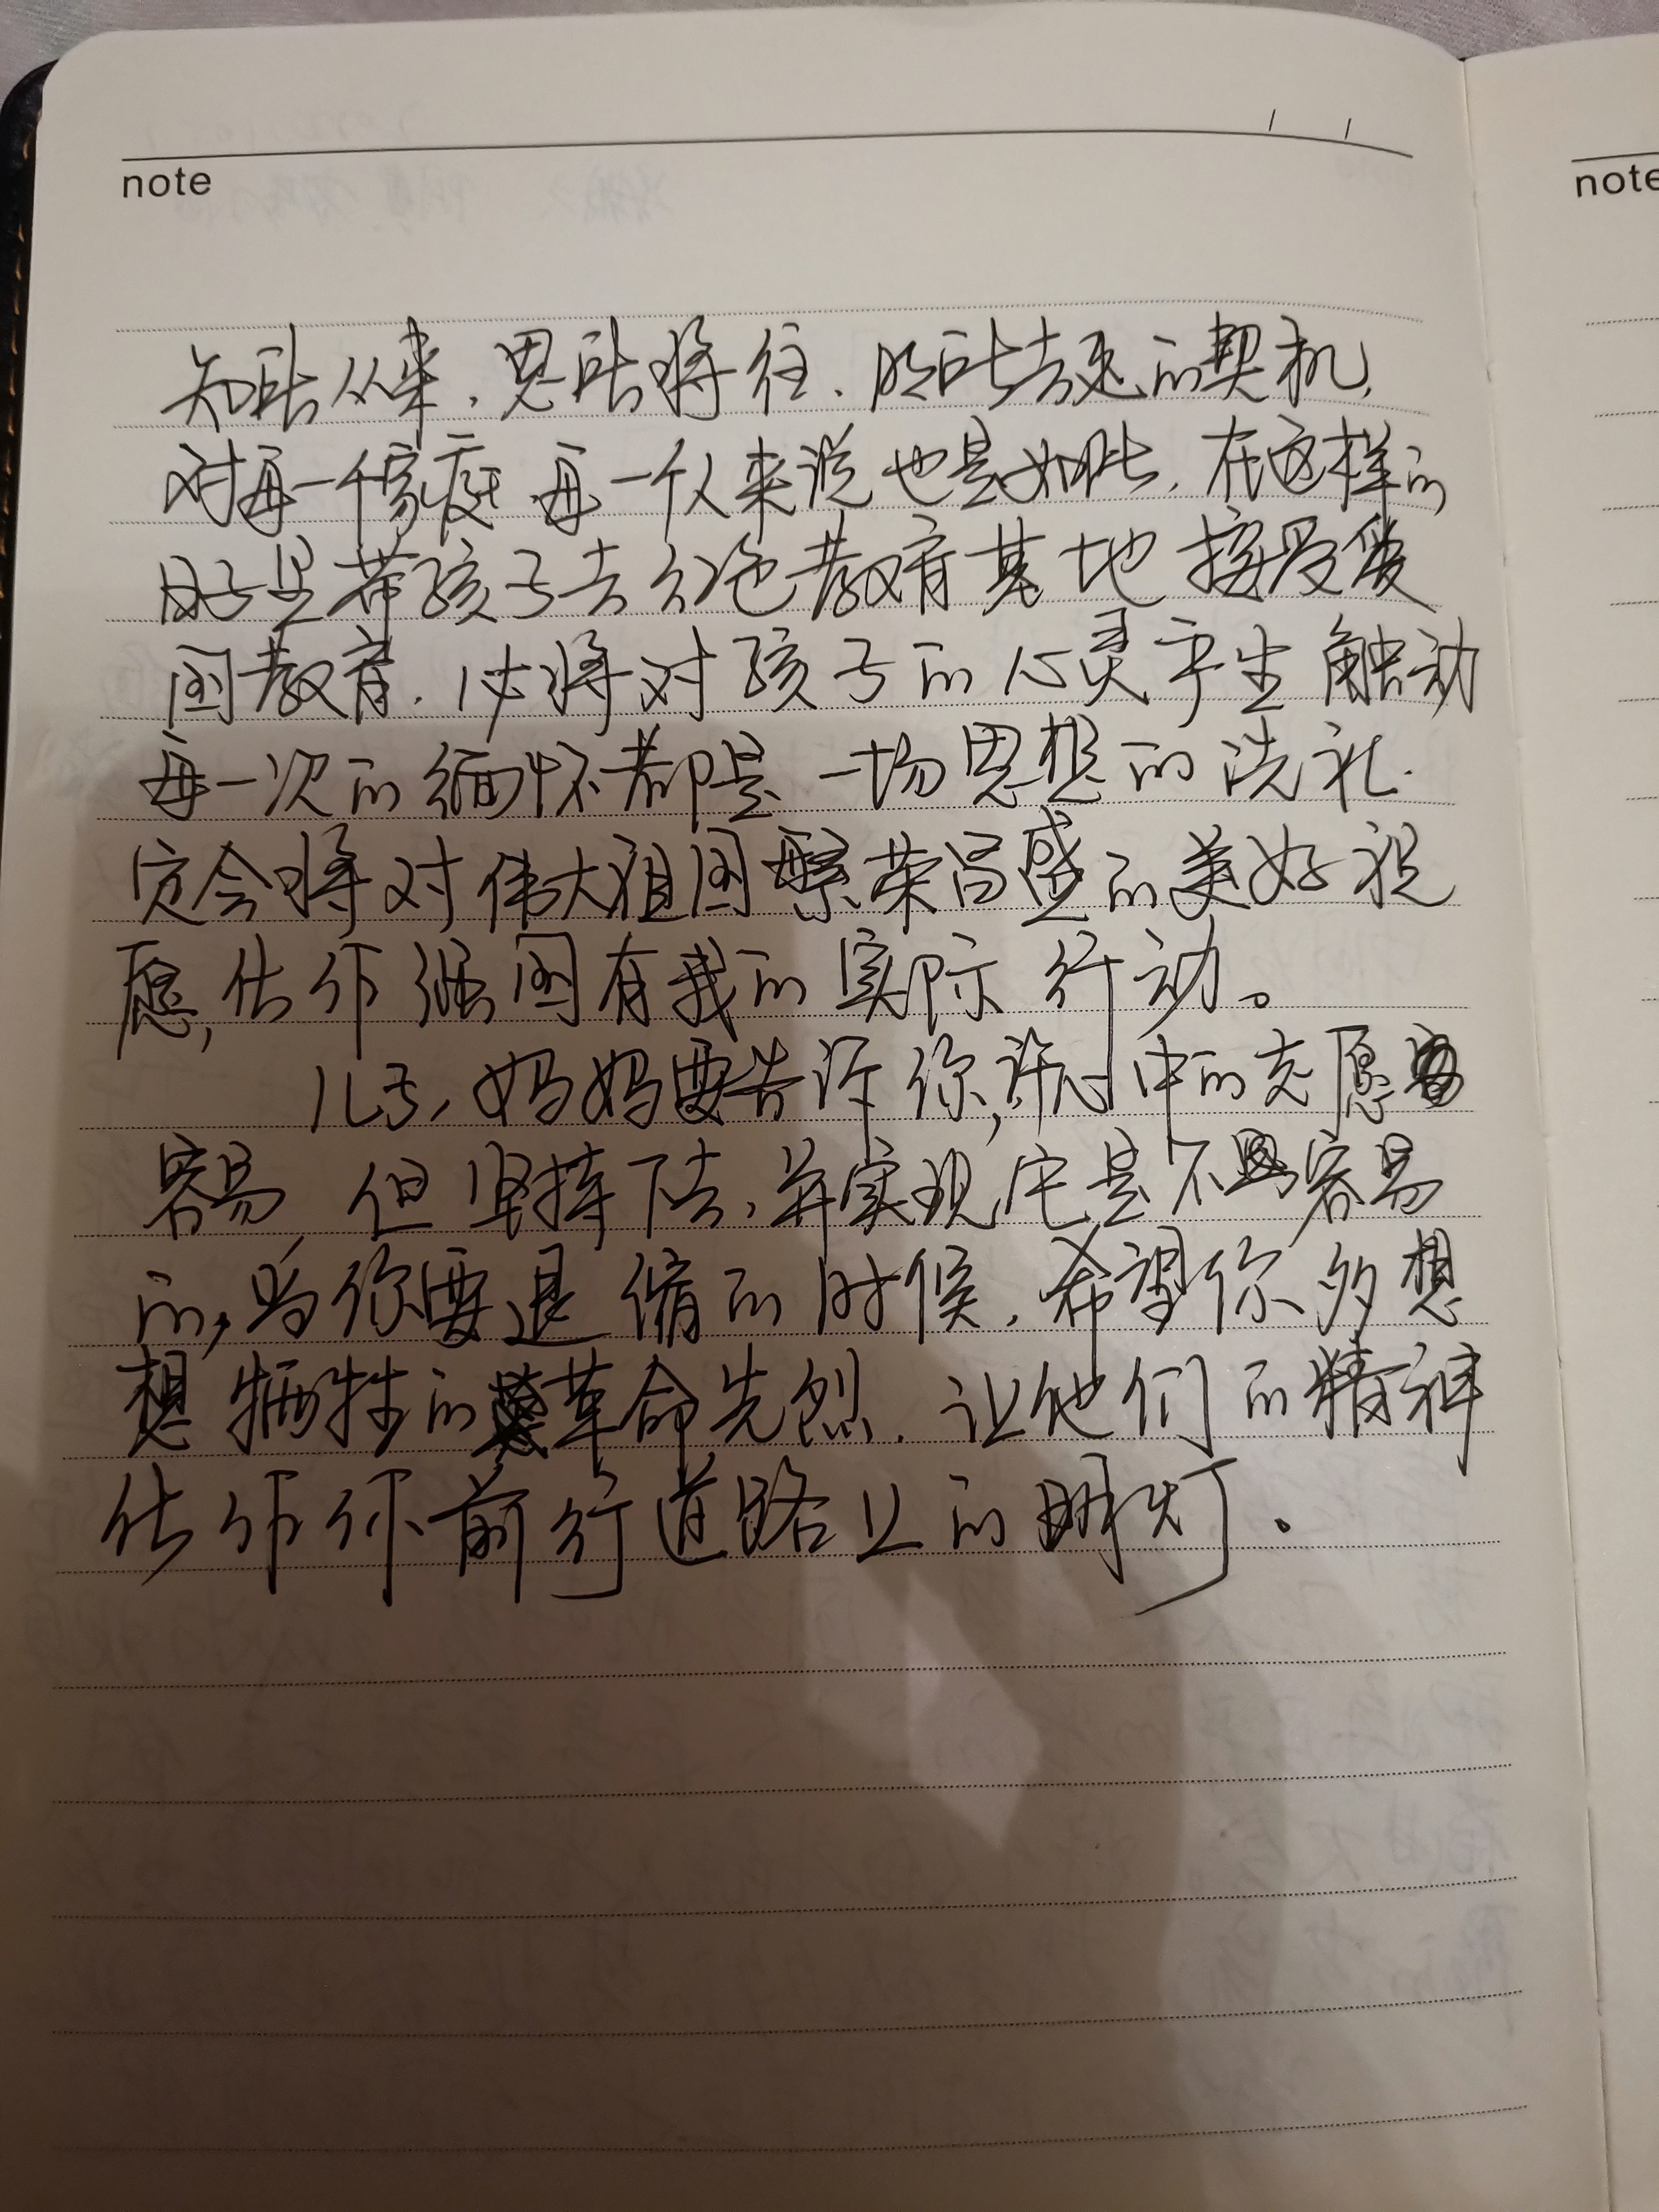 note
note
知所从来，思所将往，明所去处的契机，
对每一个家庭 每一个人来说也是如此，在这样的
日子里带孩子去红色教育基地 接受爱
国教育，必将对孩子的心灵产生触动
每一次的缅怀都是一场思想的洗礼.
定会将对伟大祖国繁荣昌盛的美好祝
愿，化作强国有我的实际行动。
儿子，妈妈要告诉你，许心中的志愿
容易，但坚持下去，并实现它是不容易
的，当你要退缩的时候，希望你多想
想牺牲的革命先烈，让他们的精神
化作你前行道路上的明灯。